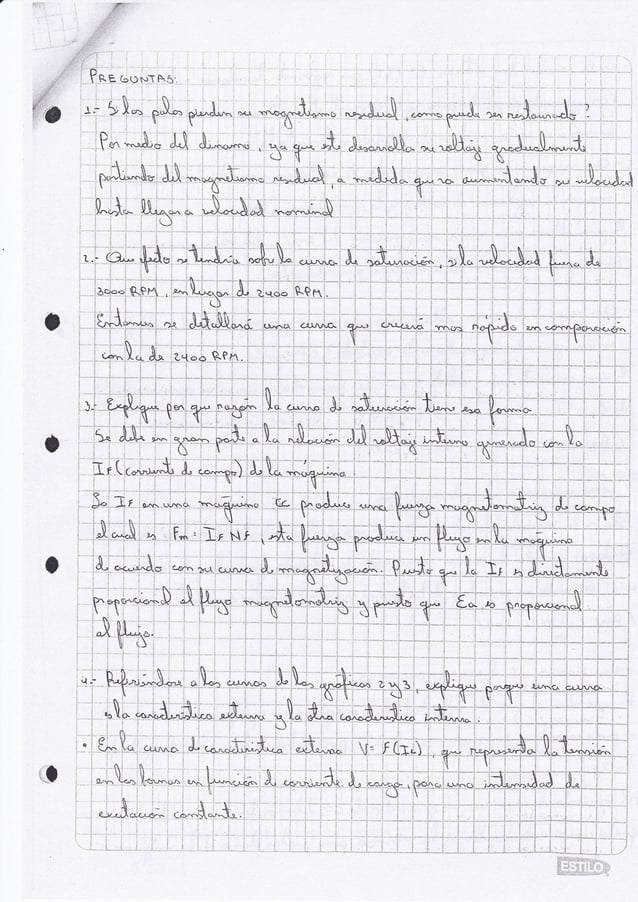 PREGUNTAS:
1.- Si los polos pierden su magnetismo residual, como puede ser restaurado?
Por medio del dinamo, ya que este desarrolla su voltaje gradualmente
partiendo del magnetismo residual, a medida que va aumentando su velocidad
hasta llegar a velocidad nominal
2.- Que efecto se tendría sobre la curva de saturación, si la velocidad fuera de
3000 RPM, en lugar de 2400 RPM.
Entonces se detallará una curva que crecerá mas rápido en comparación
con la de 2400 RPM.
3.- Explique por que razón la curva de saturación tiene esa forma
Se debe en gran parte a la relación del voltaje interno generado con la
IF (corriente de campo) de la máquina.
La IF en una maquina CC produce una fuerza magnetomotriz de campo
el cual es Fm = IF NF, esta fuerza produce un flujo en la máquina
de acuerdo con su curva de magnetización. Puesto que la IF es directamente
proporcional al flujo magnetomotriz y puesto que Ea es proporcional
al flujo.
4.- Refiriéndose a las curvas de las gráficas 2 y 3, explique porque una curva
es la característica externa y la otra característica interna.
• En la curva de característica externa V = F(IL), que representa la tensión
en los bornas en función de corriente de carga, para una intensidad de
excitación constante.
ESTILO